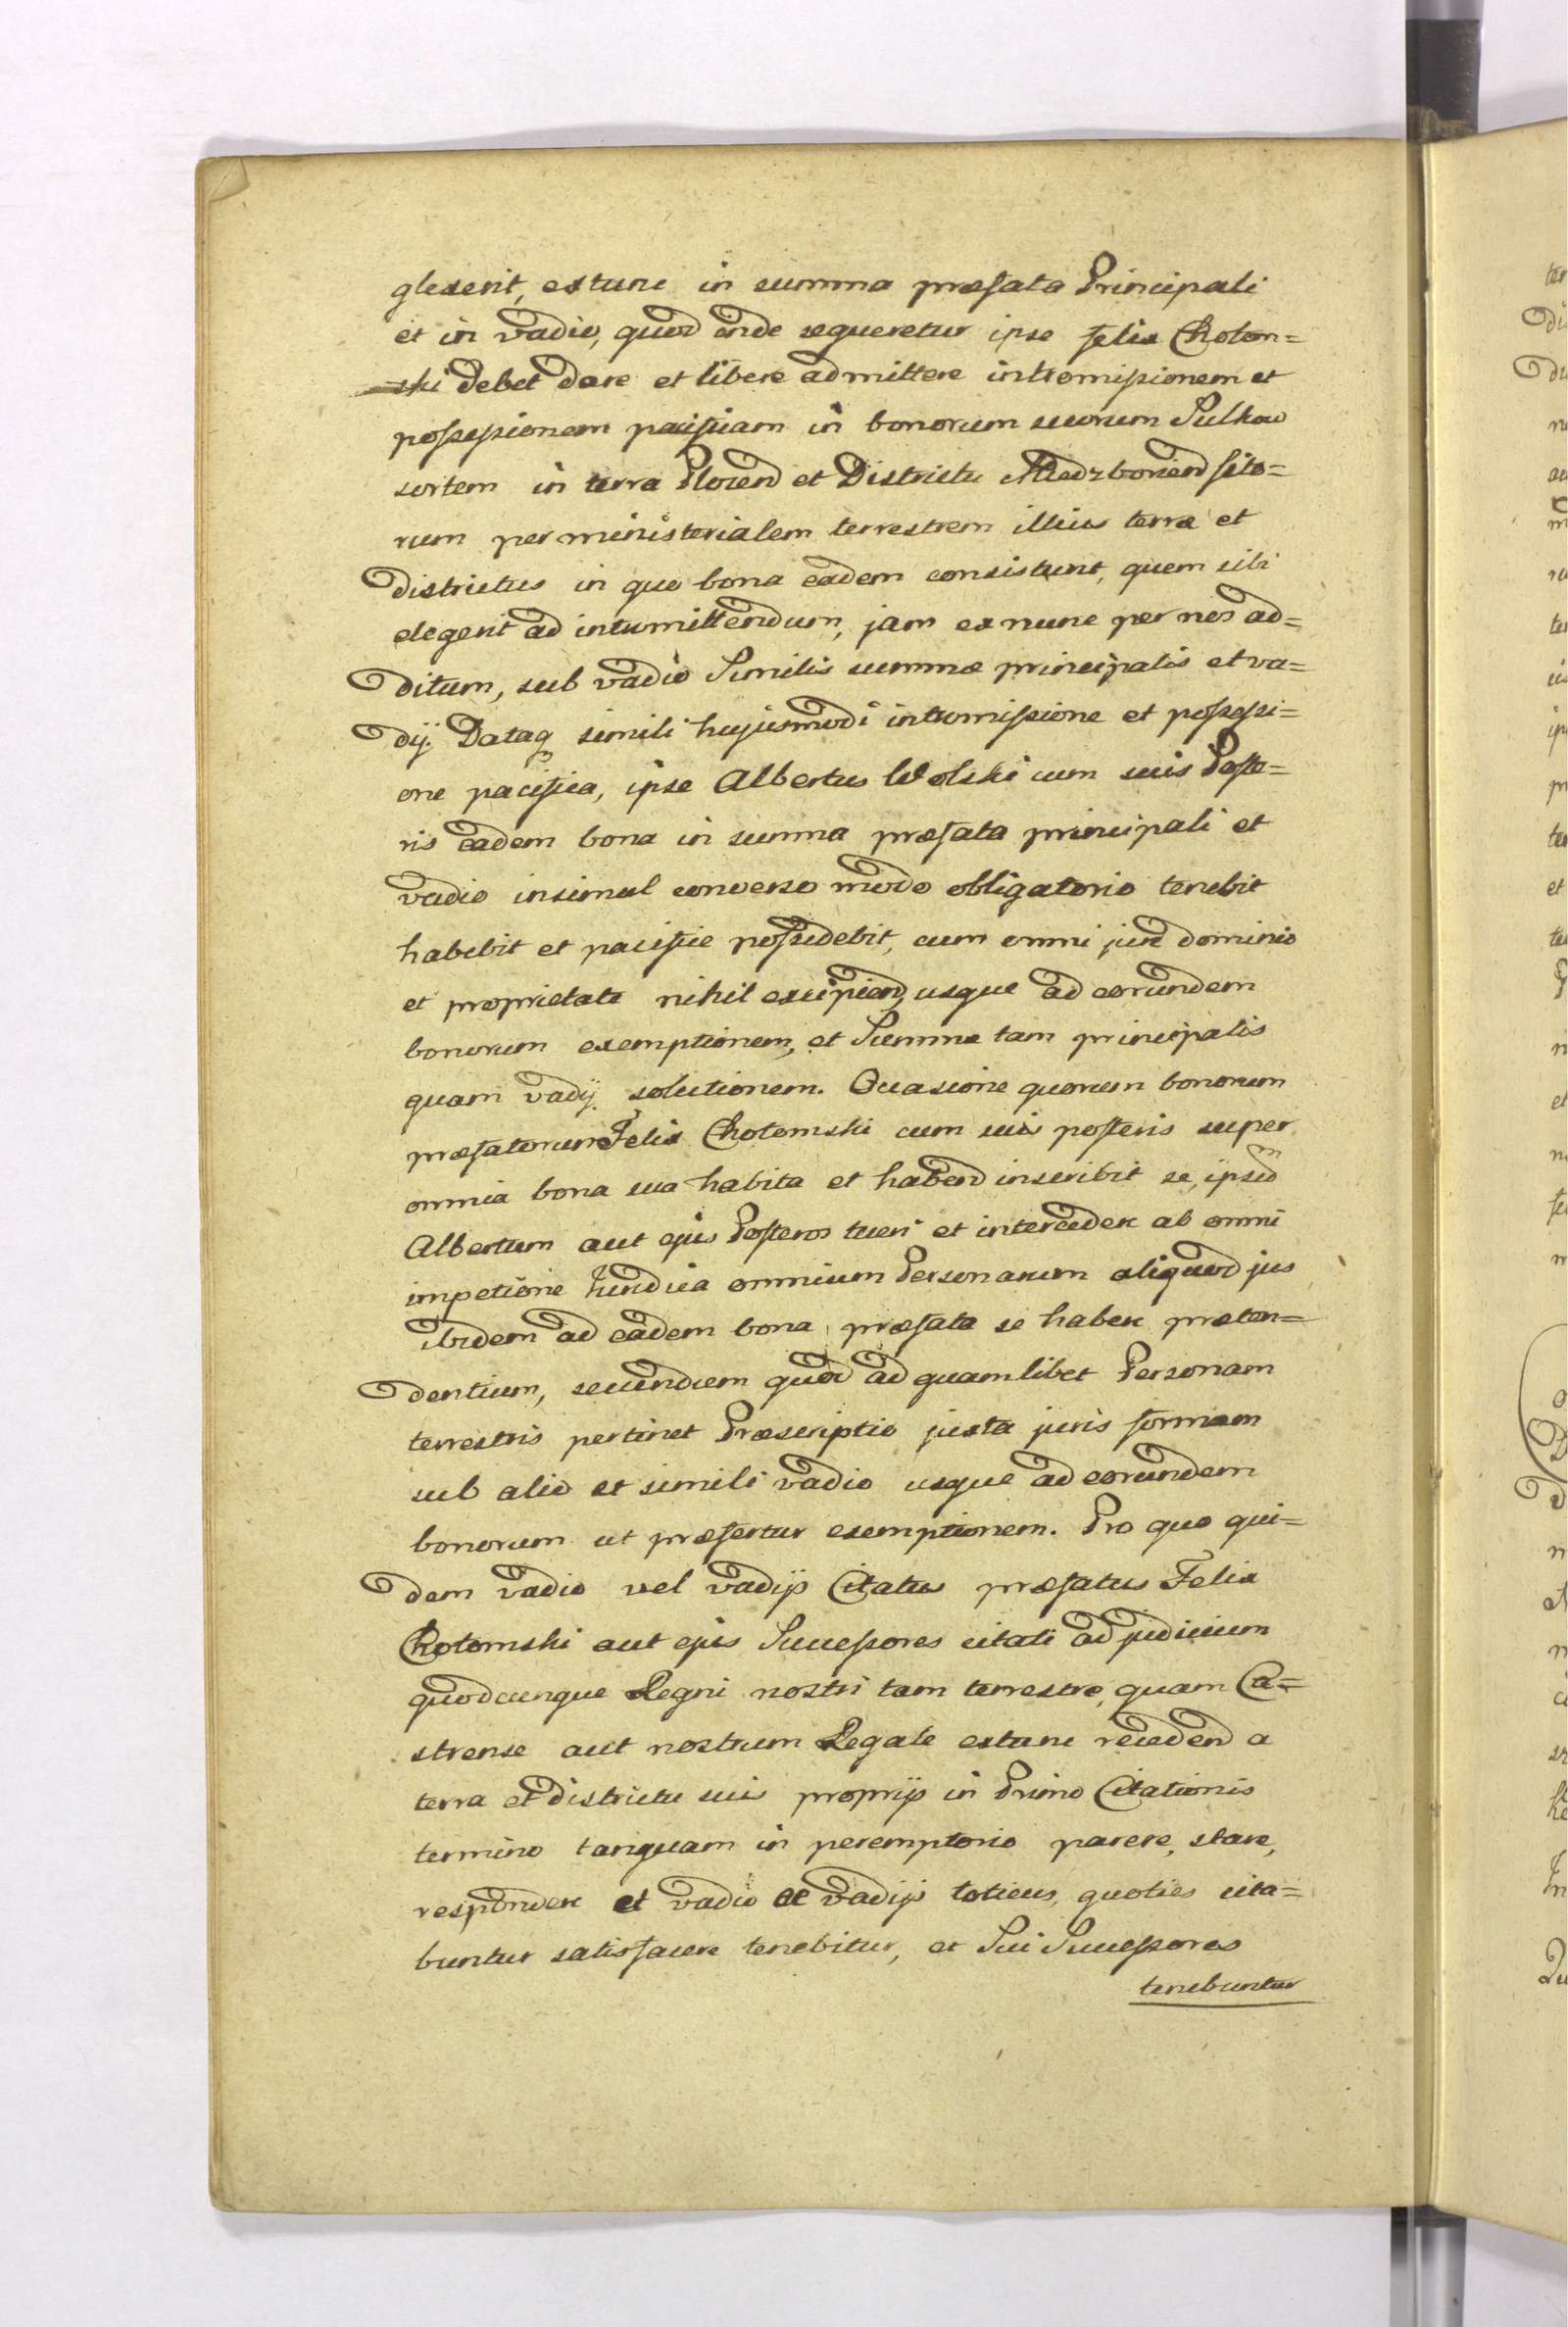 glexerit, extunc in summa præfata Principali
et in vadio, quod inde sequeretur ipse Felix Chotom=
=ski debet dare et libere admittere intromissionem et
possessionem pacificam in bonorum suorum Sulkow
sortem in terra Plocen et Districtu Miedzborien sito=
rum per ministerialem terrestrem illius terræ et
districtus in quo bona eadem consistunt, quem sibi
elegerit ad intromittendum, jam ex nunc per nos ad=
ditum, sub vadio Similis summæ principalis et va=
dij. Dataq simili hujusmodi intromissione et possessi=
one pacifica, ipse Albertus Wolski cum suis Poste=
ris eadem bona in summa præfata principali et
vadio insimul converso modo obligatorio tenebit
habebit et pacifice possidebit, cum omni jure dominio
et proprietate nihil excipiend, usque ad eorundem
bonorum exemptionem, et Summæ tam principalis
quam vadij solutionem. Occasione quorum bonorum
præfatorum Felix Chotomski cum suis posteris super
omnia bona sua habita et habend inscribit se, ipsum
Albertum aut ejus Posteros tueri et intercedere ab omni
impetitione juridica omnium Personarum aliquod jus
ibidem ad eadem bona præfata se habere præten=
dentium, secundum quod ad quamlibet Personam
terrestris pertinet Præscriptio juxta juris formam
sub alio et simili vadio usque ad eorundem
bonorum ut præfertur exemptionem. Pro quo qui=
dem vadio vel vadijs Citatus præfatus Felix
Chotomski aut ejus Successores citati ad judicium
quodcunque Regni nostri tam terrestre, quam Ca=
strense aut nostrum Regale extunc recedend a
terra et districtu suis proprijs in Primo Citationis
termino tanquam in peremptorio parere, stare,
respondere et vadio ac vadijs toties, quoties cita=
buntur satisfacere tenebitur, et Sui Successores
tenebuntur